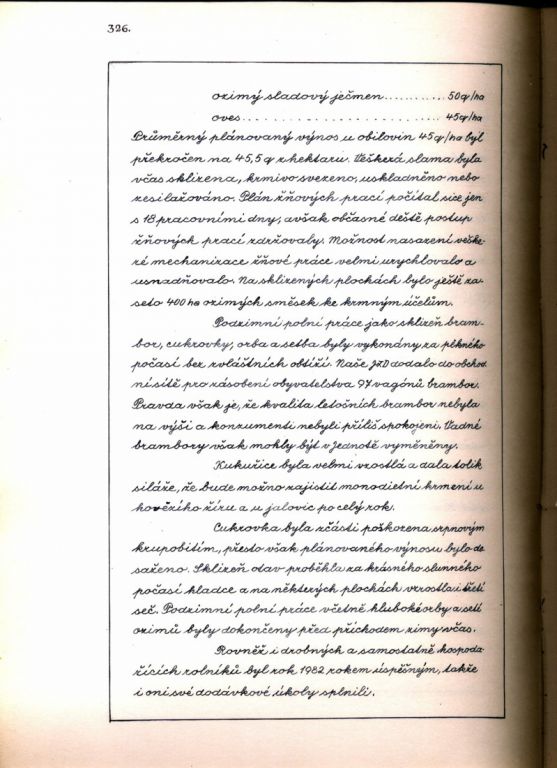 326.
ozimý sladový ječmen........... 50q/ha
oves........................ 45q/ha
Průměrný plánovaný výnos u obilovin 45q/ha byl
překročen na 45,5q z hektaru. Veškerá slama byla
včas sklizena, krmivo svezeno, uskladněno nebo
zesilažováno. Plán žňových prací počítal sice jen
s 18 pracovními dny, avšak občasné deště postup
žňových prací zdržovaly. Možnost nasazení veške-
ré mechanizace žňové práce velmi urychlovalo a
usnadňovalo. Na sklizených plochách bylo ještě za-
seto 400 ha ozimých směsek ke krmným účelům.
Podzimní polní práce jako sklizeň bram-
bor, cukrovky, orba a setba byly vykonány za pěkného
počasí bez zvláštních obtíží. Naše JZD dodalo do obchod
ní sítě pro zásobení obyvatelstva 97 vagónů brambor.
Pravda však je, že kvalita letošních brambor nebyla
na výši a konzumenti nebyli příliš spokojeni. Vadné
brambory však mohly být v Jednotě vyměněny.
Kukuřice byla velmi vzrostlá a dala tolik
siláže, že bude možno zajistit monodietní krmení u
hovězího žíru a u jalovic po celý rok.
Cukrovka byla zčásti poškozena srpnovým
krupobitím, přesto však plánovaného výnosu bylo do
saženo. Sklizeň otav proběhla za krásného slunného
počasí hladce a na některých plochách vzrostla i třetí
seč. Podzimní polní práce včetně hluboké orby a setí
ozimů byly dokončeny před příchodem zimy včas.
Rovněž i drobných a samostatně hospoda
řících rolníků byl rok 1982 rokem úspěšným, takže
i oni své dodávkové úkoly splnili.